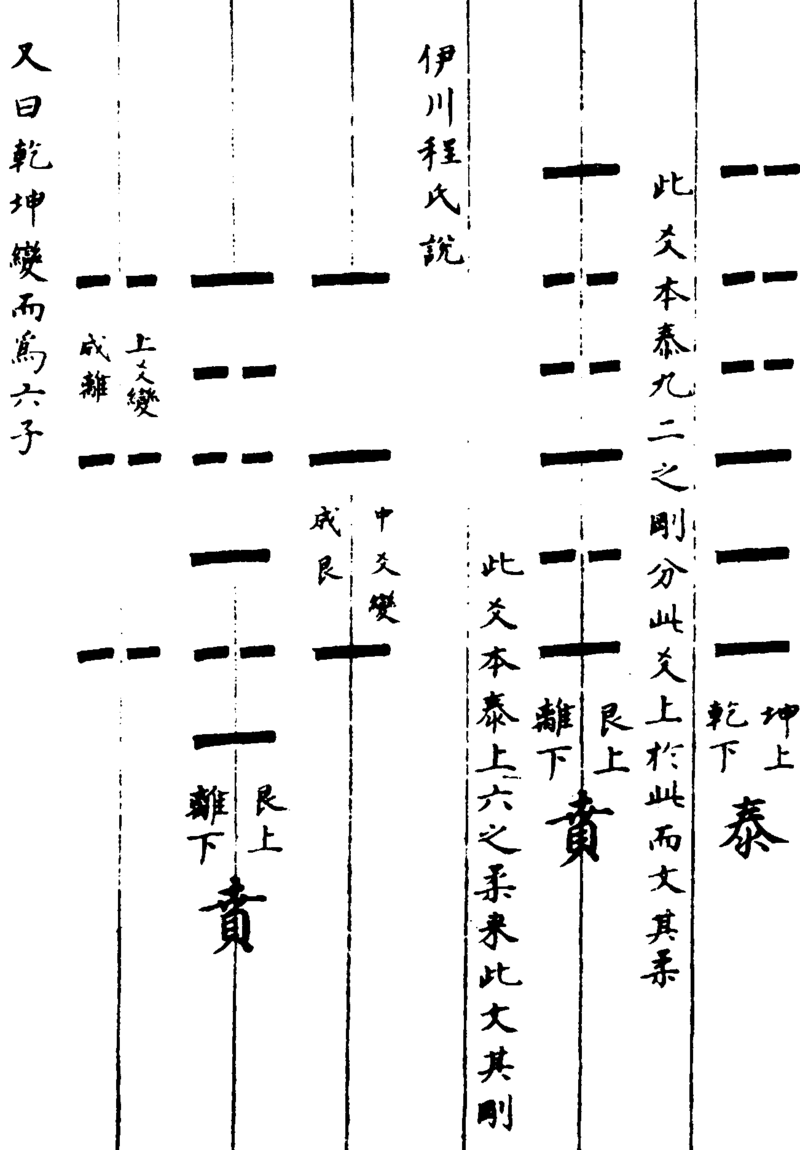 坤上
乾下
泰
此爻本泰九二之剛分此爻上於此而文其柔
艮上
離下
賁
此爻本泰上六之柔来此文其剛
伊川程氏說
中爻變
成艮
艮上
離下
賁
上爻變
成離
又曰乾坤變而爲六子